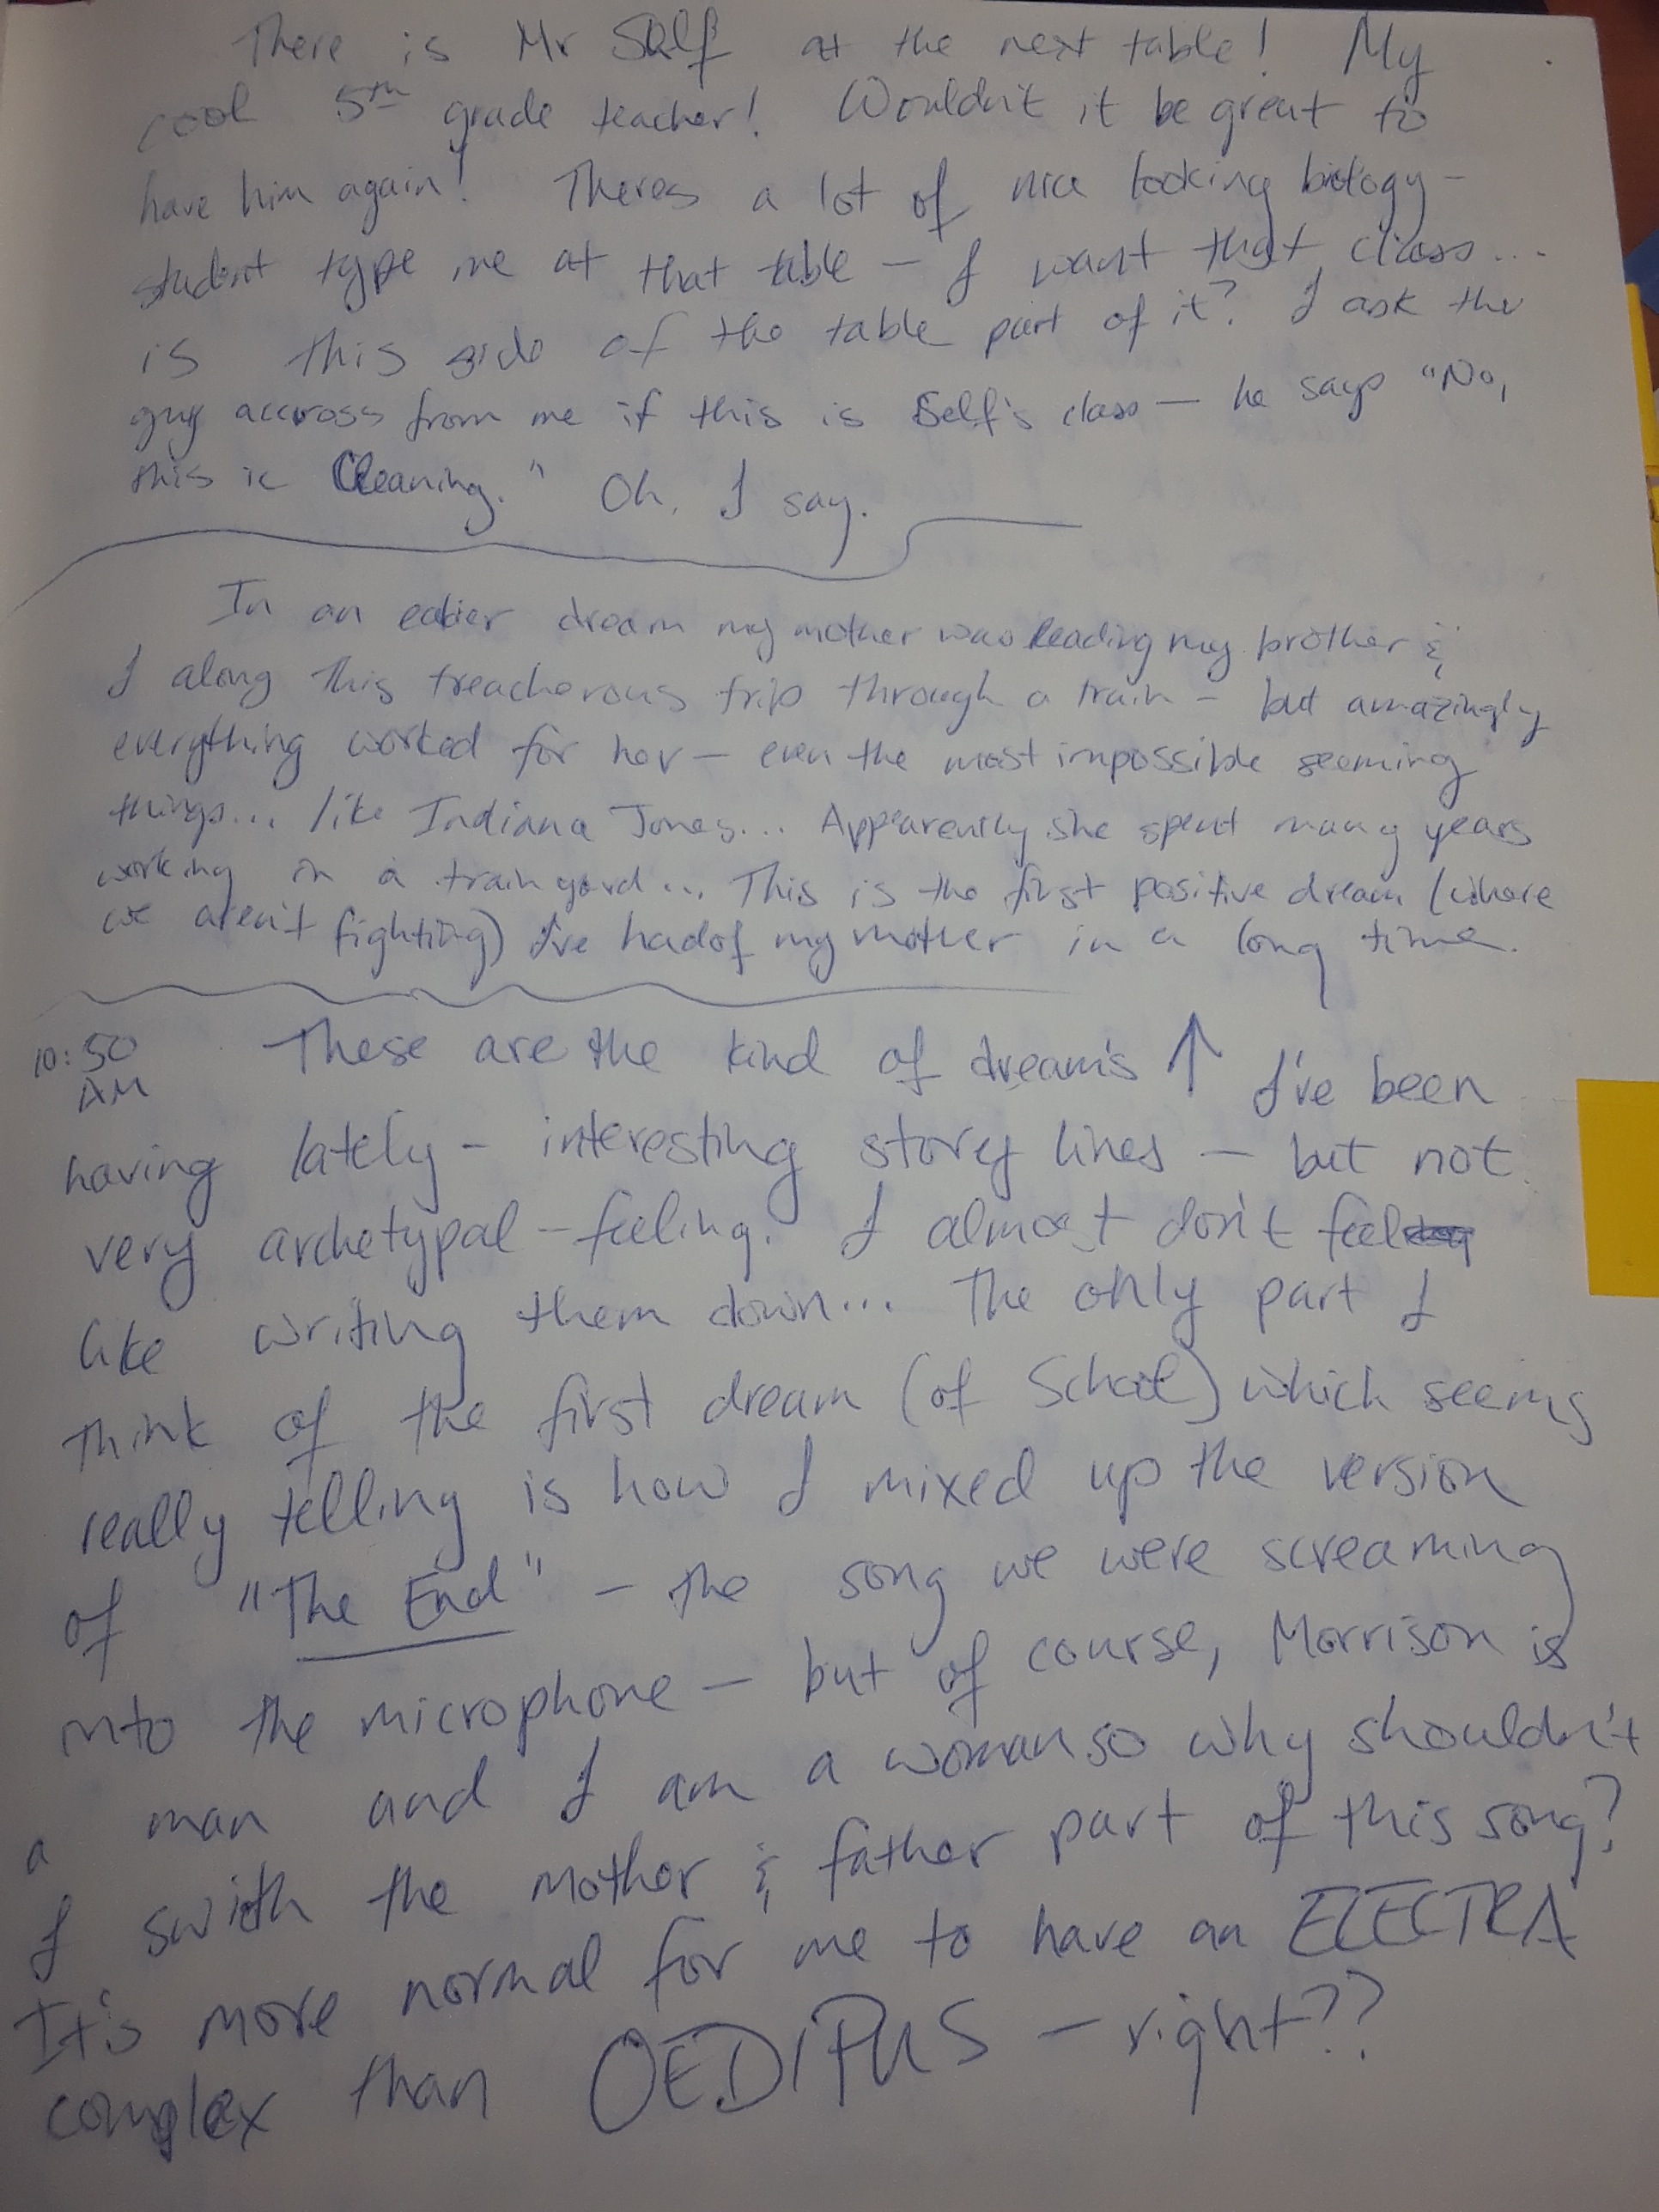 There is Mr Self at the next table! My
cool 5th grade teacher! Wouldn't it be great to
have him again! Theres a lot of nice looking biology-
student type me at that table - I want that class...
is this side of the table part of it? I ask the
guy accross from me if this is Self's class - he says "No,
this is Cleaning." Oh, I say.
In an ealier dream my mother was leading my brother &
I along this treacherous trip through a train - but amazingly
everything worked for her - even the most impossible seeming
things... like Indiana Jones... Apparently she spent many years
working in a train yard... This is the first positive dream (where
we aren't fighting) I've had of my mother in a long time.
10:50 These are the kind of dream's ↑ I've been
AM
having lately - interesting storey lines - but not
very archetypal-feeling. I almost don't feel
like writing them down... The only part I
think of the first dream (of School) which seems
really telling is how I mixed up the version
of "The End" - the song we were screaming
into the microphone - but of course, Morrison is
a man and I am a woman so why shouldn't
I swith the mother & father part of this song?
It's more normal for me to have an ELECTRA
complex than OEDIPUS - right??